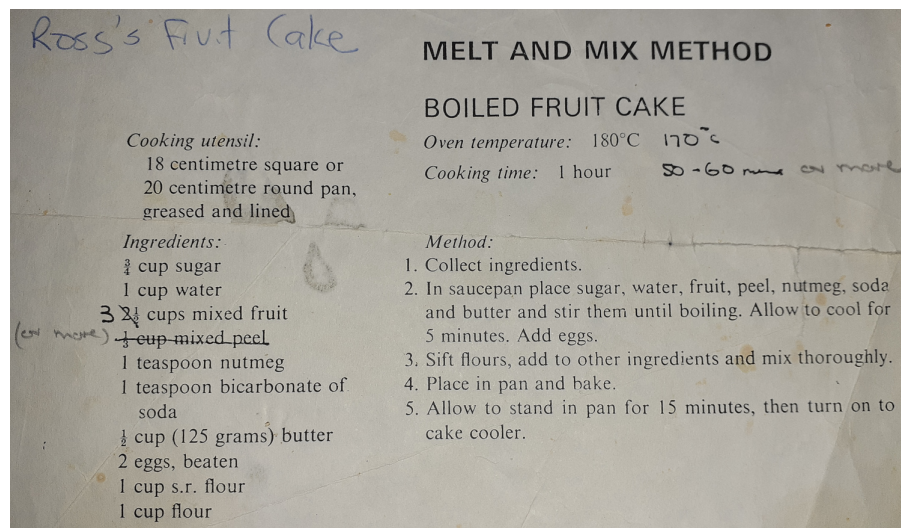 Ross's Fruit Cake
MELT AND MIX METHOD
BOILED FRUIT CAKE
Oven temperature: 180°C 170°c
Cooking time: 1 hour 50-60 mins or more
Cooking utensil:
18 centimetre square or
20 centimetre round pan,
greased and lined
Ingredients:
¾ cup sugar
1 cup water
3 2½ cups mixed fruit
(or more) ⅓ cup mixed peel
1 teaspoon nutmeg
1 teaspoon bicarbonate of
soda
½ cup (125 grams) butter
2 eggs, beaten
1 cup s.r. flour
1 cup flour
Method:
1. Collect ingredients.
2. In saucepan place sugar, water, fruit, peel, nutmeg, soda
and butter and stir them until boiling. Allow to cool for
5 minutes. Add eggs.
3. Sift flours, add to other ingredients and mix thoroughly.
4. Place in pan and bake.
5. Allow to stand in pan for 15 minutes, then turn on to
cake cooler.